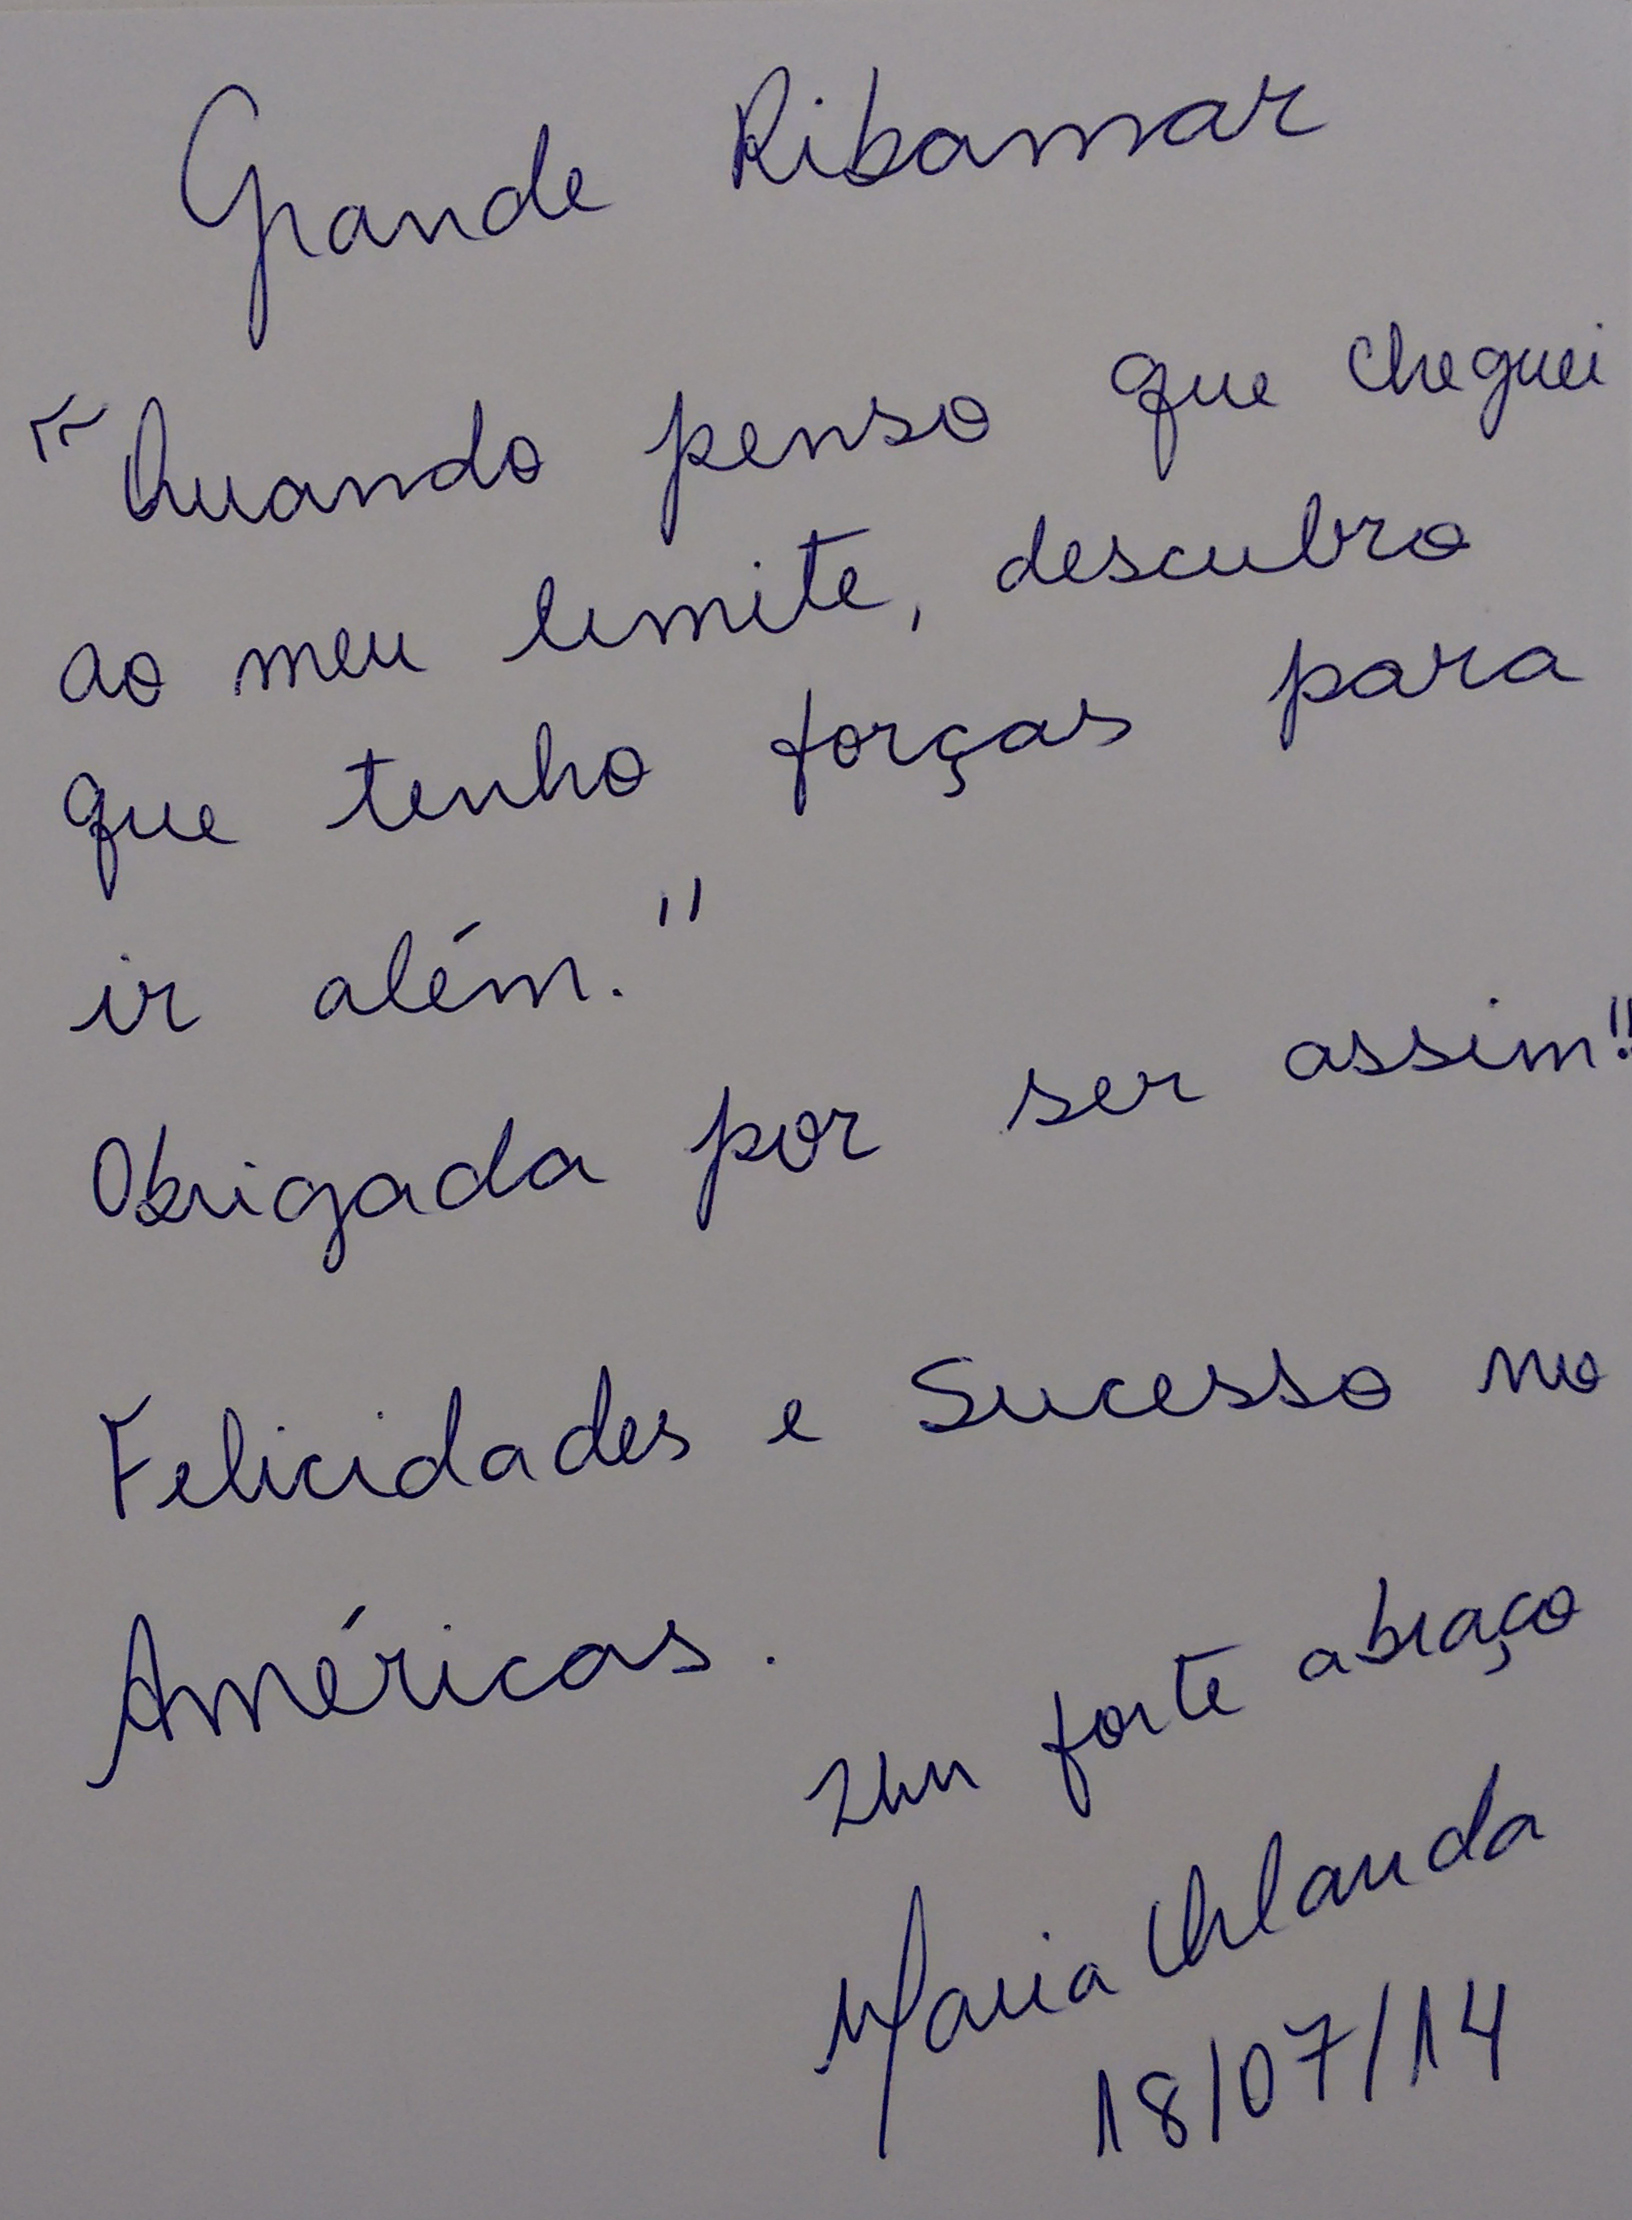 Grande Ribamar
"Quando penso que cheguei
ao meu limite, descubro
que tenho forças para
ir além."
Obrigada por ser assim!!
Felicidades e Sucesso no
Américas.
Um forte abraço
Maria Orlanda
18/07/14